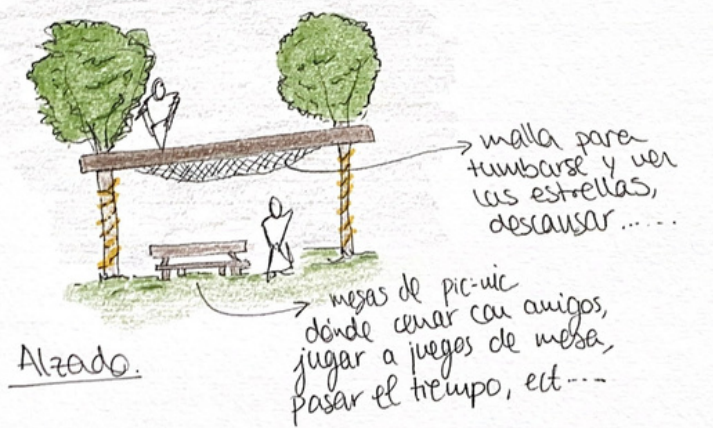 malla para
tumbarse y ver
las estrellas,
descansar......
mesas de pic-nic
dónde cenar con amigos,
jugar a juegos de mesa,
pasar el tiempo, ect....
Alzado.